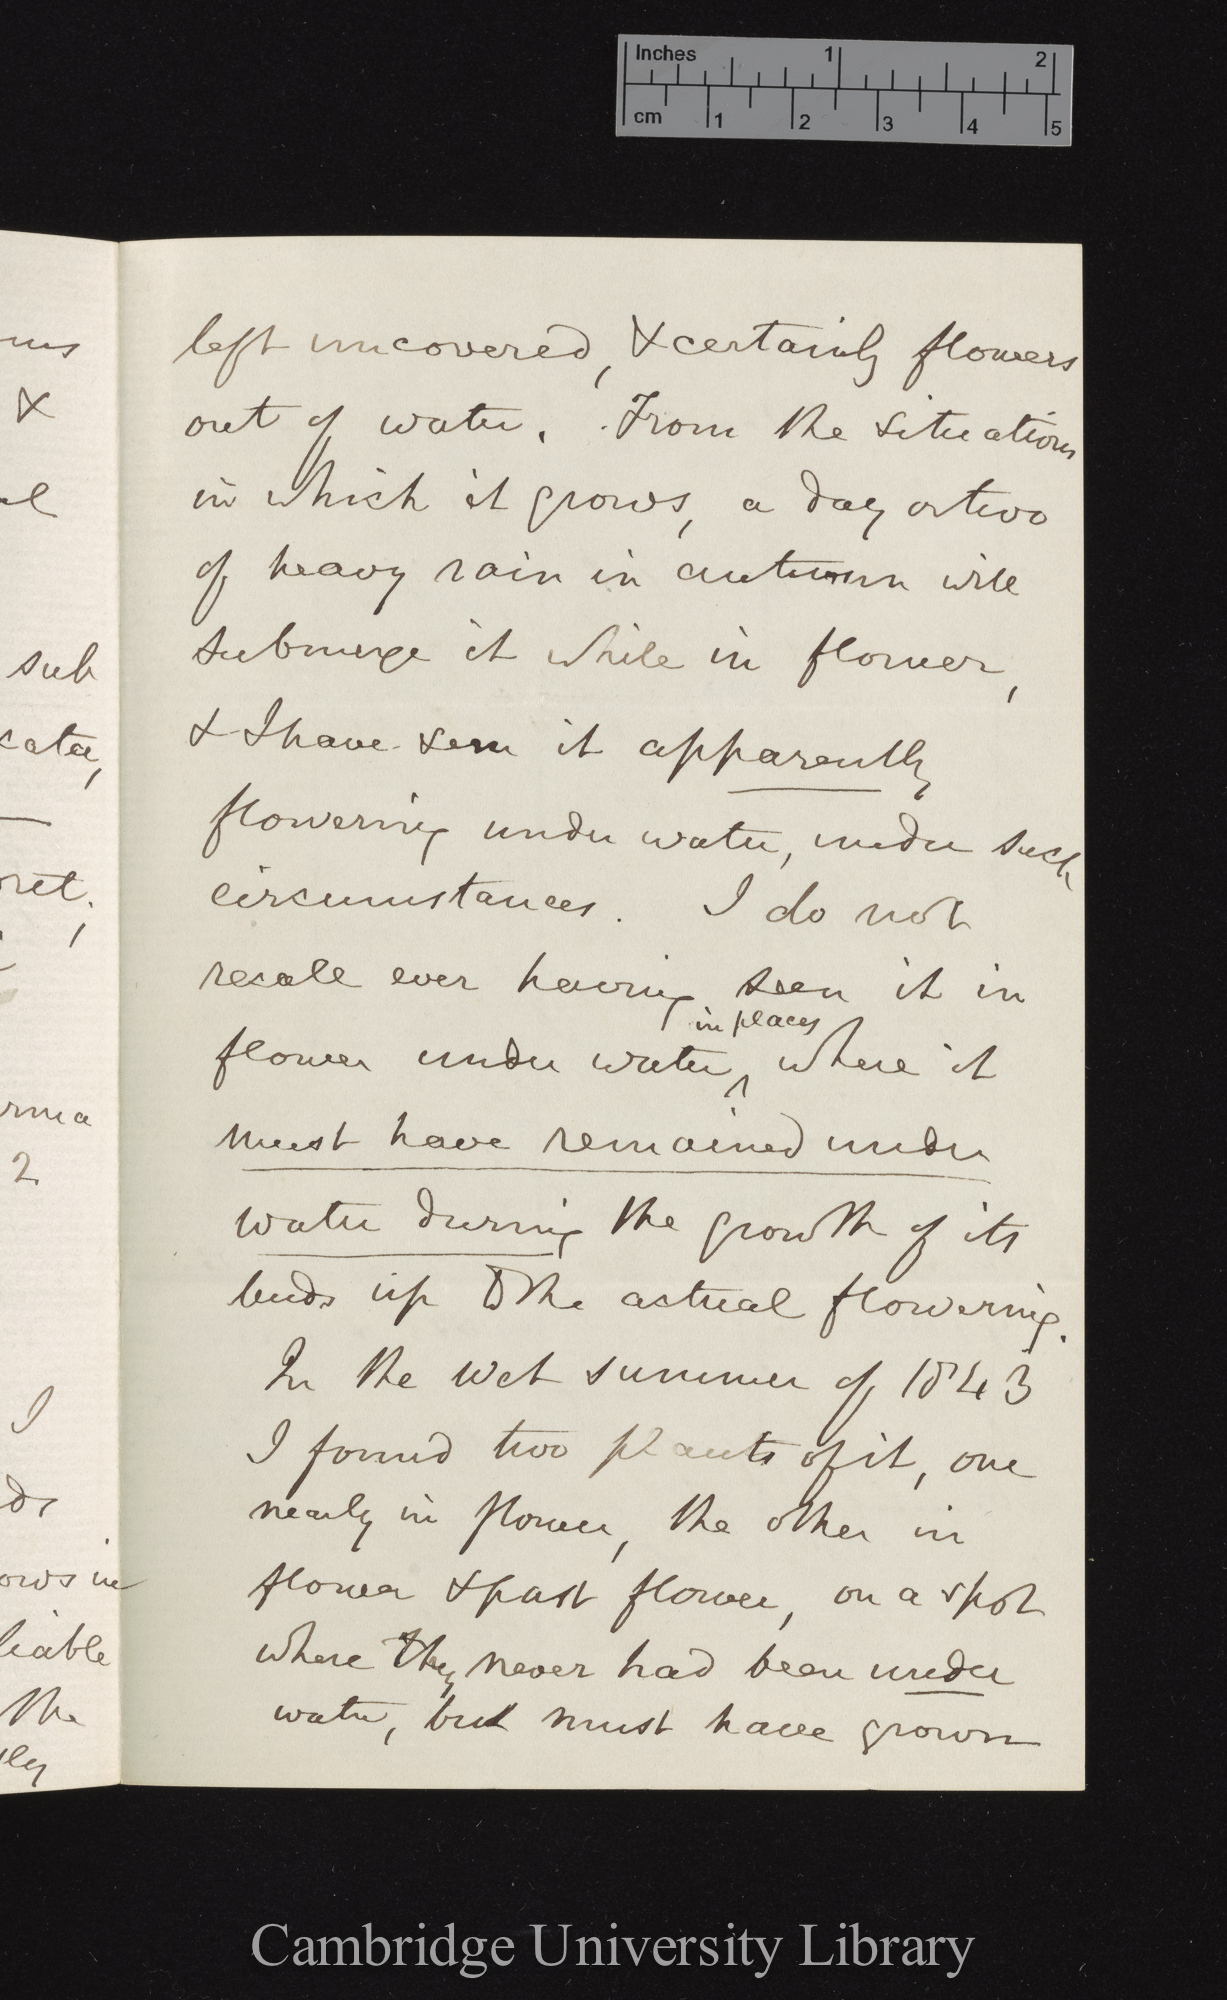 Inches 1 2
cm 1 2 3 4 5
left uncovered, & certainly flowers
out of water. From the situations
in which it grows, a day or two
of heavy rain in autumn will
submerge it while in flower,
& I have seen it apparently
flowering under water, under such
circumstances. I do not
recall ever having seen it in
in places
flower under water, where it
must have remained under
water during the growth of its
buds up to the actual flowering.
In the wet summer of 1843
I found two plants of it, one
nearly in flower, the other in
flower & past flower, on a spot
where they never had been under
water, but must have grown
ms
&
al
sub
cata,
ret.
rma
2
I
ds
ows in
liable
the
ly
Cambridge University Library